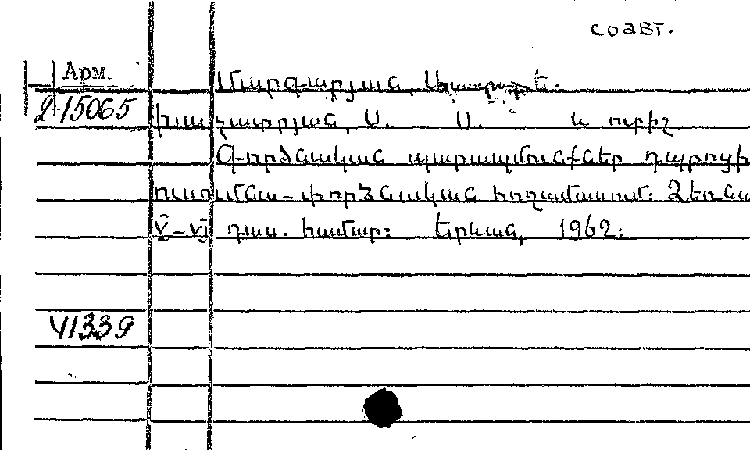 соавт.
Арм.
Մարգարյան,
2-15065
խաչատրյան, Ս. Ս. և ուրիշ
Գործնական պարապմունքներ դպրոցի
ուսումնա-փորձնական հողամասում: Ձեռնա
V-VI դաս. համար: Երևան, 1962:
41339